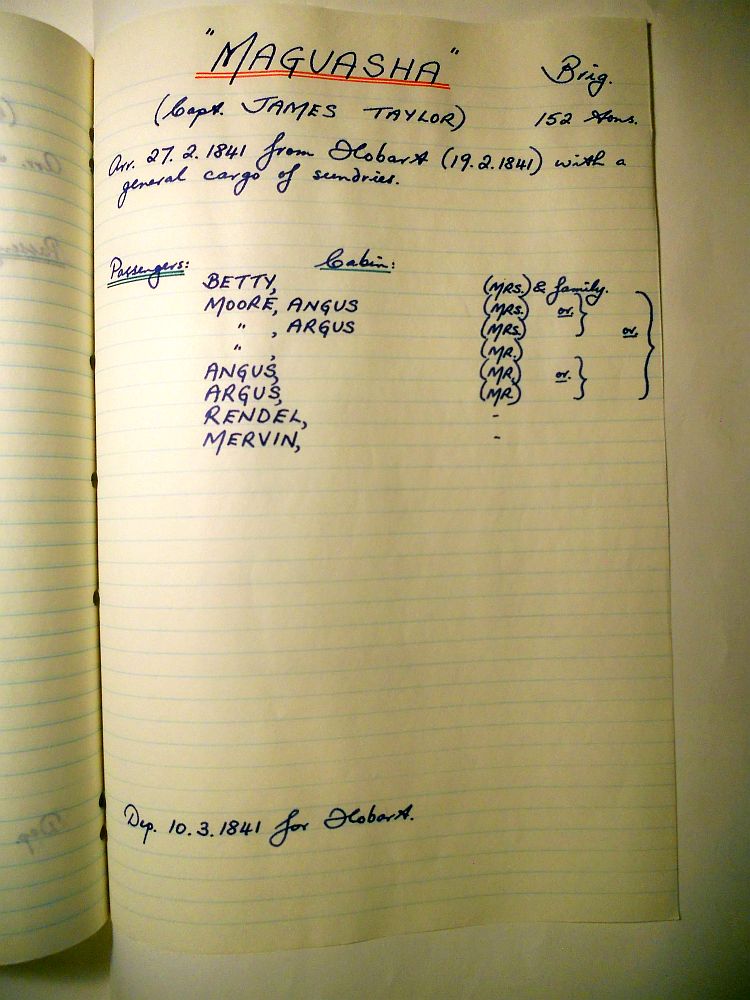 "MAGUASHA" Brig.
(Capt. JAMES TAYLOR) 152 tons.
Arr. 27.2.1841 from Hobart (19.2.1841) with a
general cargo of sundries.
Passengers: Cabin:
BETTY, (MRS.) & family.
MOORE, ANGUS (MRS.) or.
" , ARGUS (MRS) or.
" , (MR.)
ANGUS, (MR, or.
ARGUS, (MR)
RENDEL, -
MERVIN, -
Dep. 10.3.1841 for Hobart.